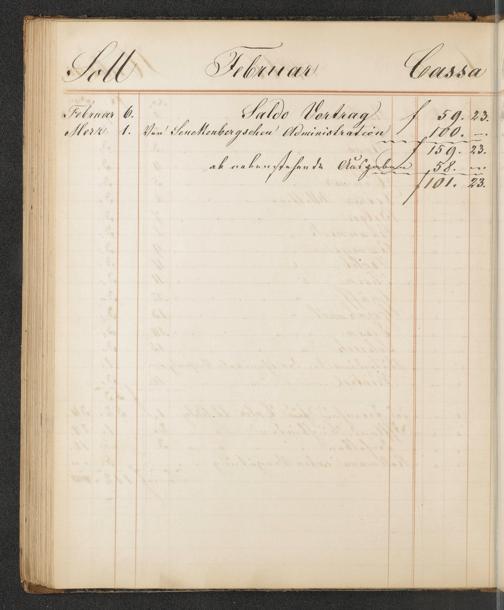 Soll Februar Cassa
Februar 6. Saldo Vortrag f 59. 23.
Merz 1. Von Senckenbergschen Administration f 100. —
f 159. 23.
ab nebenstehende Ausgaben 58. —
f 101. 23.